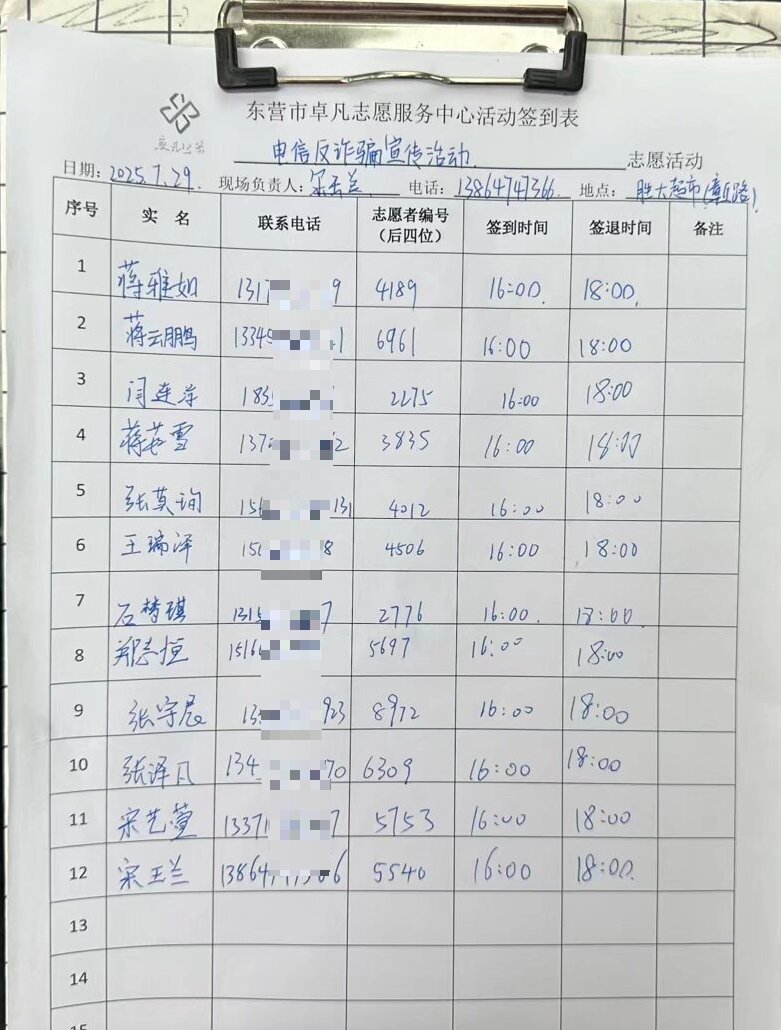 东营市卓凡志愿服务中心活动签到表
电信反诈骗宣传活动 志愿活动
日期：2025.7.29. 现场负责人：宋玉兰 电话：13864747366 地点：胜大超市(章丘路)
序号 实 名 联系电话 志愿者编号（后四位） 签到时间 签退时间 备注
1 蒋雅如 1317 9 4189 16:00 18:00
2 蒋云鹏 1334 1 6961 16:00 18:00
3 闫连萍 183 2275 16:00 18:00
4 蒋若雪 137 2 3835 16:00 18:00
5 张莫询 156 131 4012 16:00 18:00
6 王瑞泽 150 8 4506 16:00 18:00
7 石梦琪 1315 7 2776 16:00 18:00
8 郑志恒 1516 5697 16:00 18:00
9 张宇晨 13 923 8972 16:00 18:00
10 张泽凡 134 70 6309 16:00 18:00
11 宋艺萱 1337 7 5753 16:00 18:00
12 宋玉兰 13864 66 5540 16:00 18:00
13
14